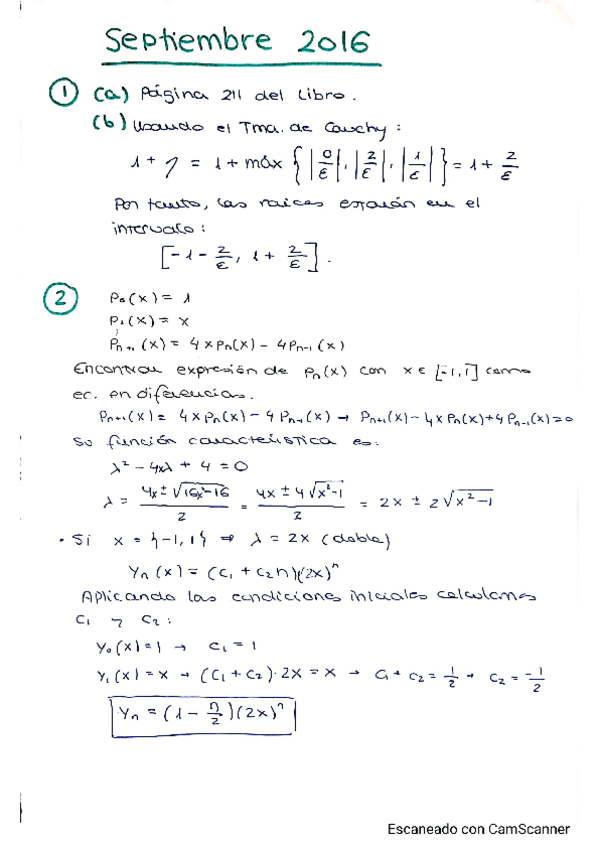 Septiembre 2016
① (a) Página 211 del Libro.
(b) Usando el Tma. de Cauchy:
1 + η = 1 + máx { |0/ε|, |2/ε|, |1/ε| } = 1 + 2/ε
Por tanto, las raices estarán en el
intervalo:
[-1 - 2/ε, 1 + 2/ε].
② P₀(x) = 1
P₁(x) = x
Pn+1 (x) = 4xPn(x) - 4Pn-1(x)
Encontrar expresión de Pn(x) con x ∈ [-1,1] como
ec. en diferencias.
Pn+1(x) = 4xPn(x) - 4Pn-1(x) → Pn+1(x) - 4xPn(x) + 4Pn-1(x) = 0
Su función característica es:
λ² - 4xλ + 4 = 0
λ = (4x ± √(16x²-16))/2 = (4x ± 4√(x²-1))/2 = 2x ± 2√(x²-1)
· Si x = {-1, 1} ⇒ λ = 2x (doble)
Yn(x) = (C₁ + C₂n)(2x)ⁿ
Aplicando las condiciones iniciales calculamos
C₁ y C₂:
Y₀(x) = 1 → C₁ = 1
Y₁(x) = x → (C₁ + C₂)·2x = x → C₁ + C₂ = 1/2 → C₂ = -1/2
Yn = (1 - n/2)(2x)ⁿ
Escaneado con CamScanner